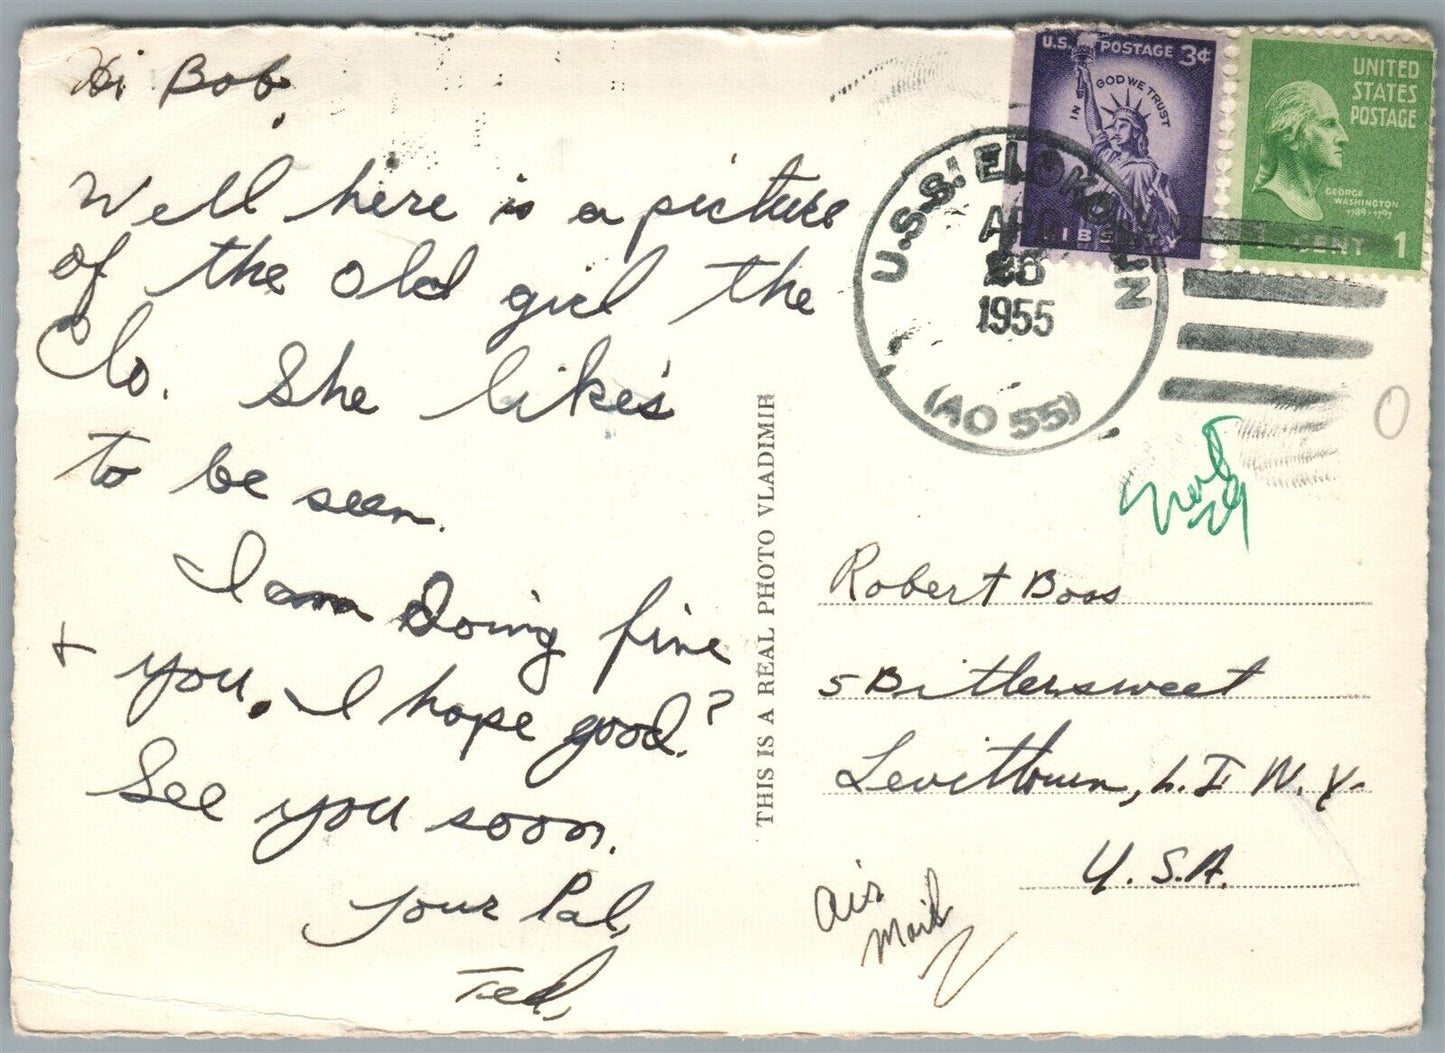 Hi Bob,
Well here is a picture
of the old girl the
Elo. She like's
to be seen.
I am doing fine
+ you, I hope good?
See you soon.
Your Pal,
Ted,
THIS IS A REAL PHOTO VLADIMIR
U.S. POSTAGE 3¢
IN GOD WE TRUST
LIBERTY
UNITED
STATES
POSTAGE
GEORGE
WASHINGTON
1789-1797
1 CENT 1
U.S.S. ELOKOMIN
APR
1955
(AO 55)
Robert Boos
5 Bittersweet
Levittown, L. I N. Y.
U.S.A.
Air
Mail